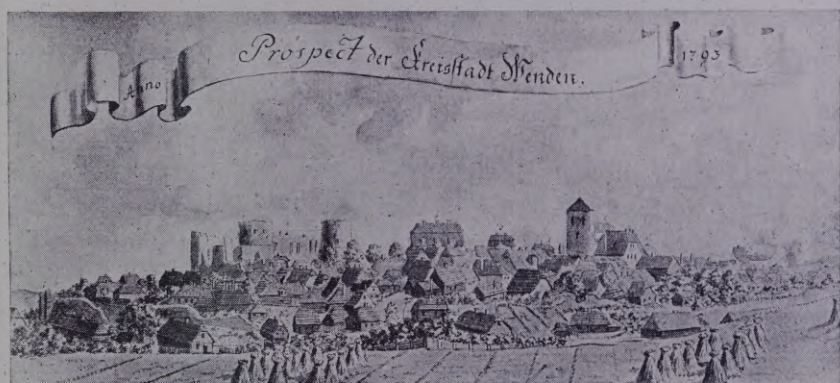 Anno Prospect der Kreisstadt Wenden. 1793